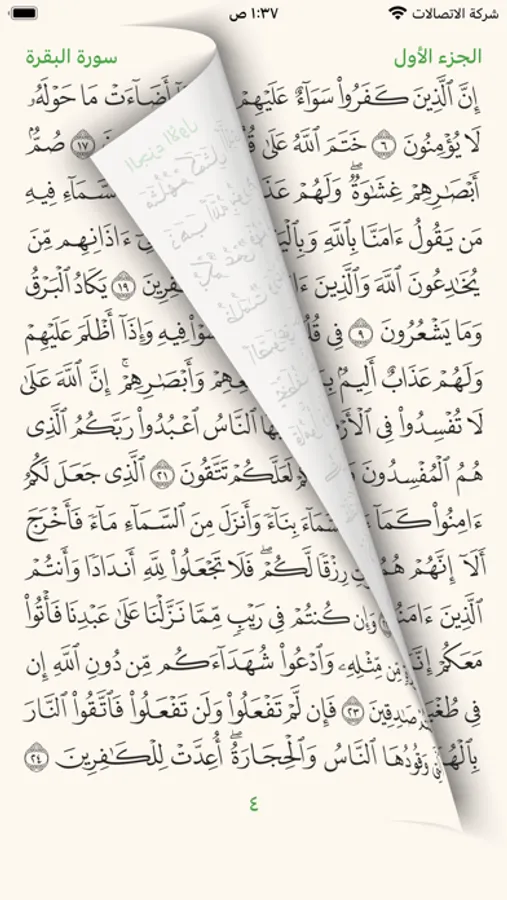 شركة الاتصالات ١:٣٧ ص
الجزء الأول سورة البقرة
إِنَّ ٱلَّذِينَ كَفَرُوا۟ سَوَآءٌ عَلَيْهِمْ أَضَآءَتْ مَا حَوْلَهُۥ
لَا يُؤْمِنُونَ ٦ خَتَمَ ٱللَّهُ عَلَىٰ ١٧ صُمٌّۢ
أَبْصَـٰرِهِمْ غِشَـٰوَةٌۖ وَلَهُمْ فِيهِ
مَن يَقُولُ ءَامَنَّا بِٱللَّهِ ءَاذَانِهِم مِّنَ
يُخَـٰدِعُونَ ٱللَّهَ وَٱلَّذِينَ ١٩ يَكَادُ ٱلْبَرْقُ
وَمَا يَشْعُرُونَ ٩ فِى فِيهِ وَإِذَآ أَظْلَمَ عَلَيْهِمْ
وَلَهُمْ عَذَابٌ أَلِيمٌۢ وَأَبْصَـٰرِهِمْۚ إِنَّ ٱللَّهَ عَلَىٰ
لَا تُفْسِدُوا۟ فِى ٱلنَّاسُ ٱعْبُدُوا۟ رَبَّكُمُ ٱلَّذِى
هُمُ ٱلْمُفْسِدُونَ لَعَلَّكُمْ تَتَّقُونَ ٢١ ٱلَّذِى جَعَلَ لَكُمُ
ءَامِنُوا۟ كَمَآ بِنَآءً وَأَنزَلَ مِنَ ٱلسَّمَآءِ مَآءً فَأَخْرَجَ
أَلَآ إِنَّهُمْ هُمُ رِزْقًا لَّكُمْۖ فَلَا تَجْعَلُوا۟ لِلَّهِ أَندَادًا وَأَنتُمْ
ٱلَّذِينَ وَإِن كُنتُمْ فِى رَيْبٍ مِّمَّا نَزَّلْنَا عَلَىٰ عَبْدِنَا فَأْتُوا۟
مَعَكُمْ مِّن مِّثْلِهِۦ وَٱدْعُوا۟ شُهَدَآءَكُم مِّن دُونِ ٱللَّهِ إِن
فِى صَـٰدِقِينَ ٢٣ فَإِن لَّمْ تَفْعَلُوا۟ وَلَن تَفْعَلُوا۟ فَٱتَّقُوا۟ ٱلنَّارَ
وَقُودُهَا ٱلنَّاسُ وَٱلْحِجَارَةُۖ أُعِدَّتْ لِلْكَـٰفِرِينَ ٢٤
٤